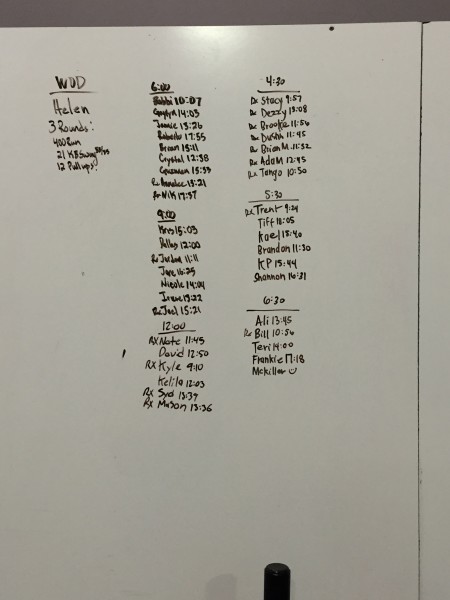 WOD
Helen
3 Rounds:
400 Run
21 KB Swing
12 Pull ups
6:00
Bobbi 10:07
14:03
Jannie 13:26
Roberto 17:55
Brian 15:11
Crystal 12:38
Guzman 15:53
Rx 15:21
Rx Nik 17:57
9:00
Kris 15:03
12:00
Rx Jordan 11:11
16:25
Nicole 14:04
Irene 13:22
Rx Joel 15:21
12:00
RX Nate 11:45
David 12:50
RX Kyle 9:10
Kelila 12:03
RX Syd 13:39
RX Mason 13:36
4:30
Rx Stacy 9:57
Rx Dezzy 13:08
Rx Brooke 11:56
Rx Dustin 11:45
Rx Brian M. 11:32
Rx Adam 12:45
Rx Tango 10:50
5:30
Rx Trent 9:24
Tiff 12:05
Kael 13:40
Brandon 11:30
KP 13:44
Shannon 16:31
6:30
Ali 13:45
Rx Bill 10:56
Teri 14:00
Frankie 17:18
Mckiller